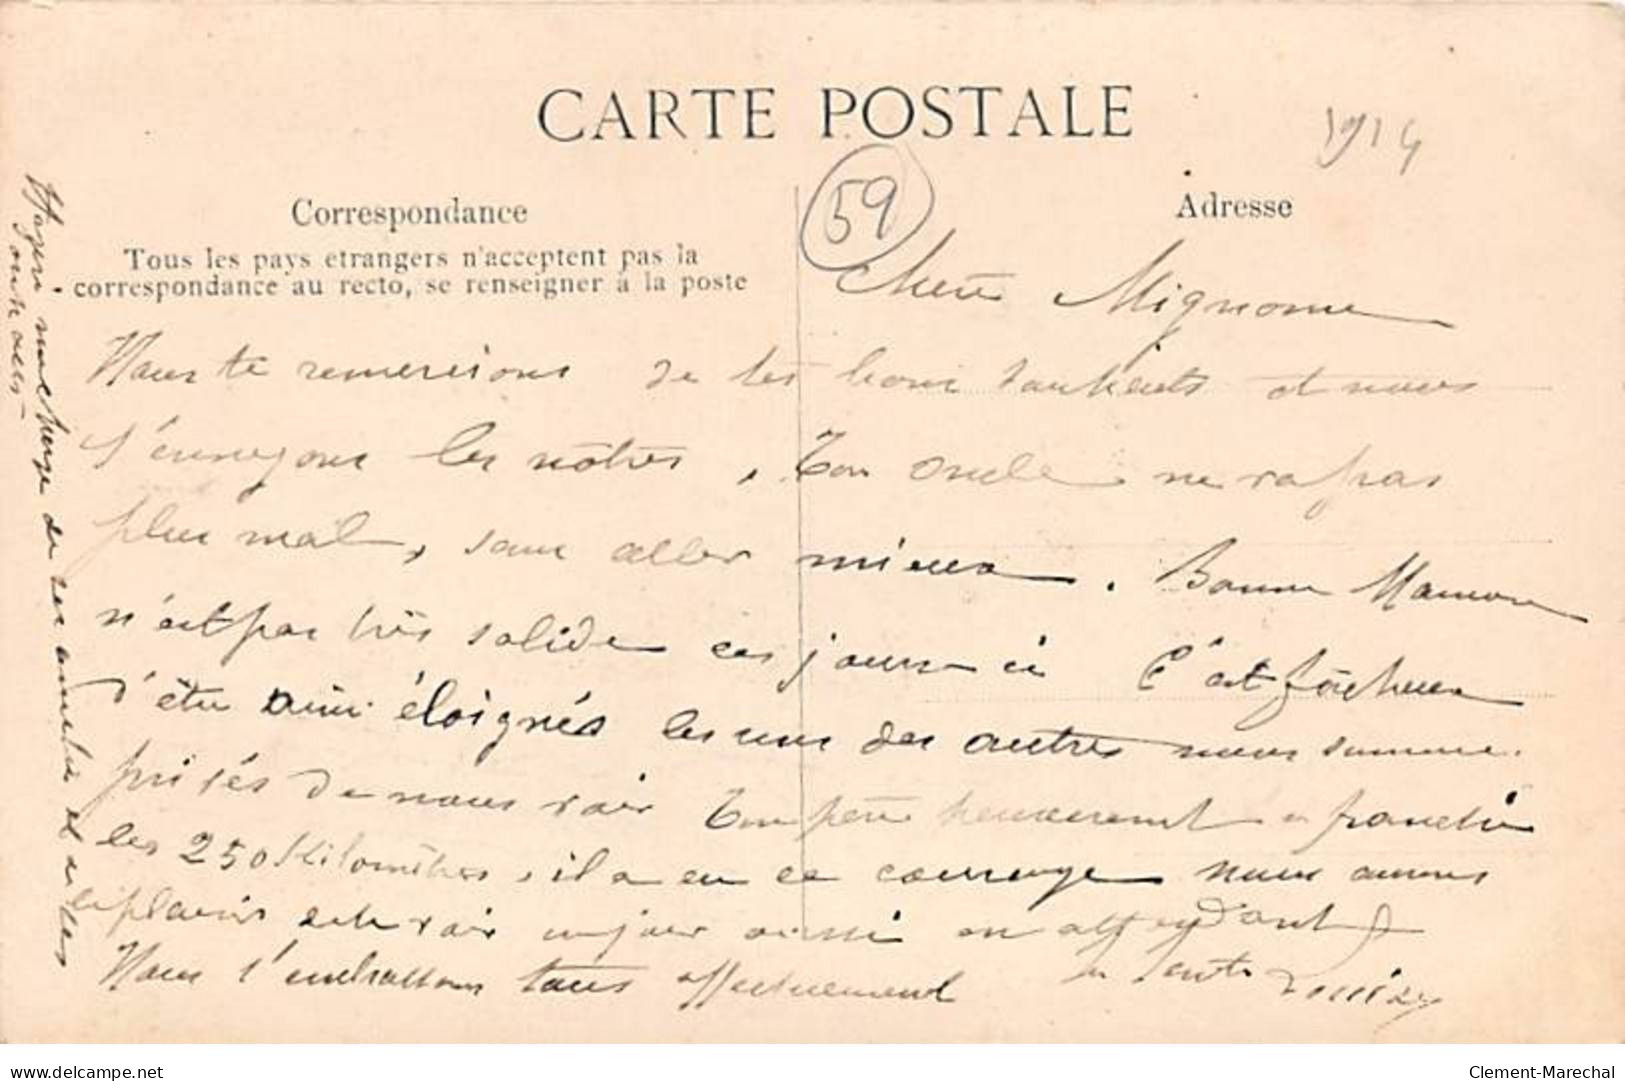 CARTE POSTALE
1914
59
Correspondance
Tous les pays etrangers n'acceptent pas la
correspondance au recto, se renseigner à la poste
Adresse
Chère Mignonne
Nous te remercions de tes bons souhaits et nous
t'envoyons les nôtres, Ton Oncle ne va pas
plus mal, sans aller mieux. Bonne Maman
n'est pas très solide ces jours ci C'est fâcheux
d'être ainsi éloignés les uns des autres nous sommes
privés de nous voir Ton père heureusement a franchi
les 250 Kilomètres, il a eu ce courage nous aurons
le plaisir de te voir un jour aussi en attendant
Nous t'embrassons tous affectueusement
ta tante Louise
me charge de ses amitiés et de les